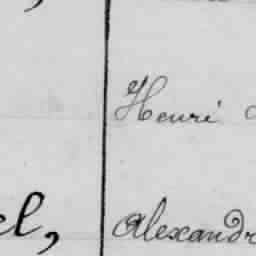 Henri
el,
Alexandr